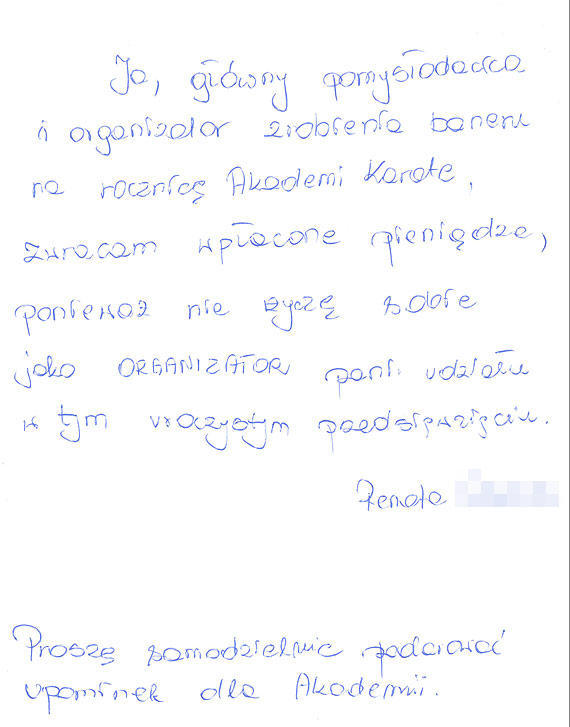 Ja, główny pomysłodawca
i organizator zrobienia baneru
na rocznicę Akademi Karate,
zwracam wpłacone pieniądze,
ponieważ nie życzę sobie
jako ORGANIZATOR pani udziału
w tym uroczystym przedsięwzięciu.
Renata
Proszę samodzielnie podarować
upominek dla Akademii.